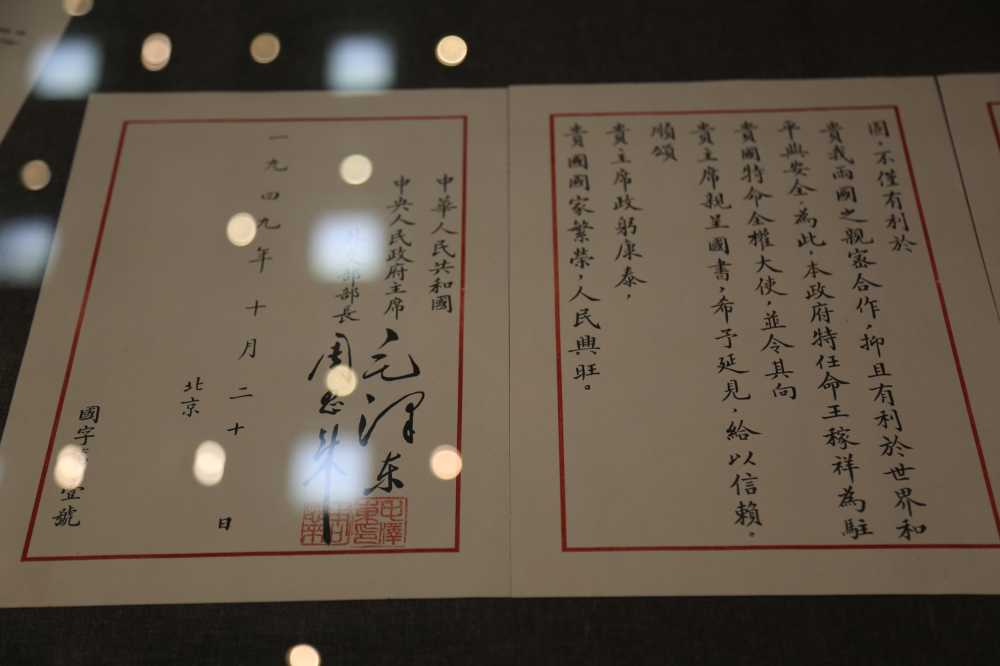 固，不僅有利於
貴我兩國之親密合作，抑且有利於世界和
平與安全，為此，本政府特任命王稼祥為駐
貴國特命全權大使，並令其向
貴主席親呈國書，希予延見，給以信賴。
順頌
貴主席政躬康泰，
貴國國家繁榮，人民興旺。
中華人民共和國
中央人民政府主席 毛澤东
部部長 周恩来
一九四九年十月二十日
北京
國字壹號